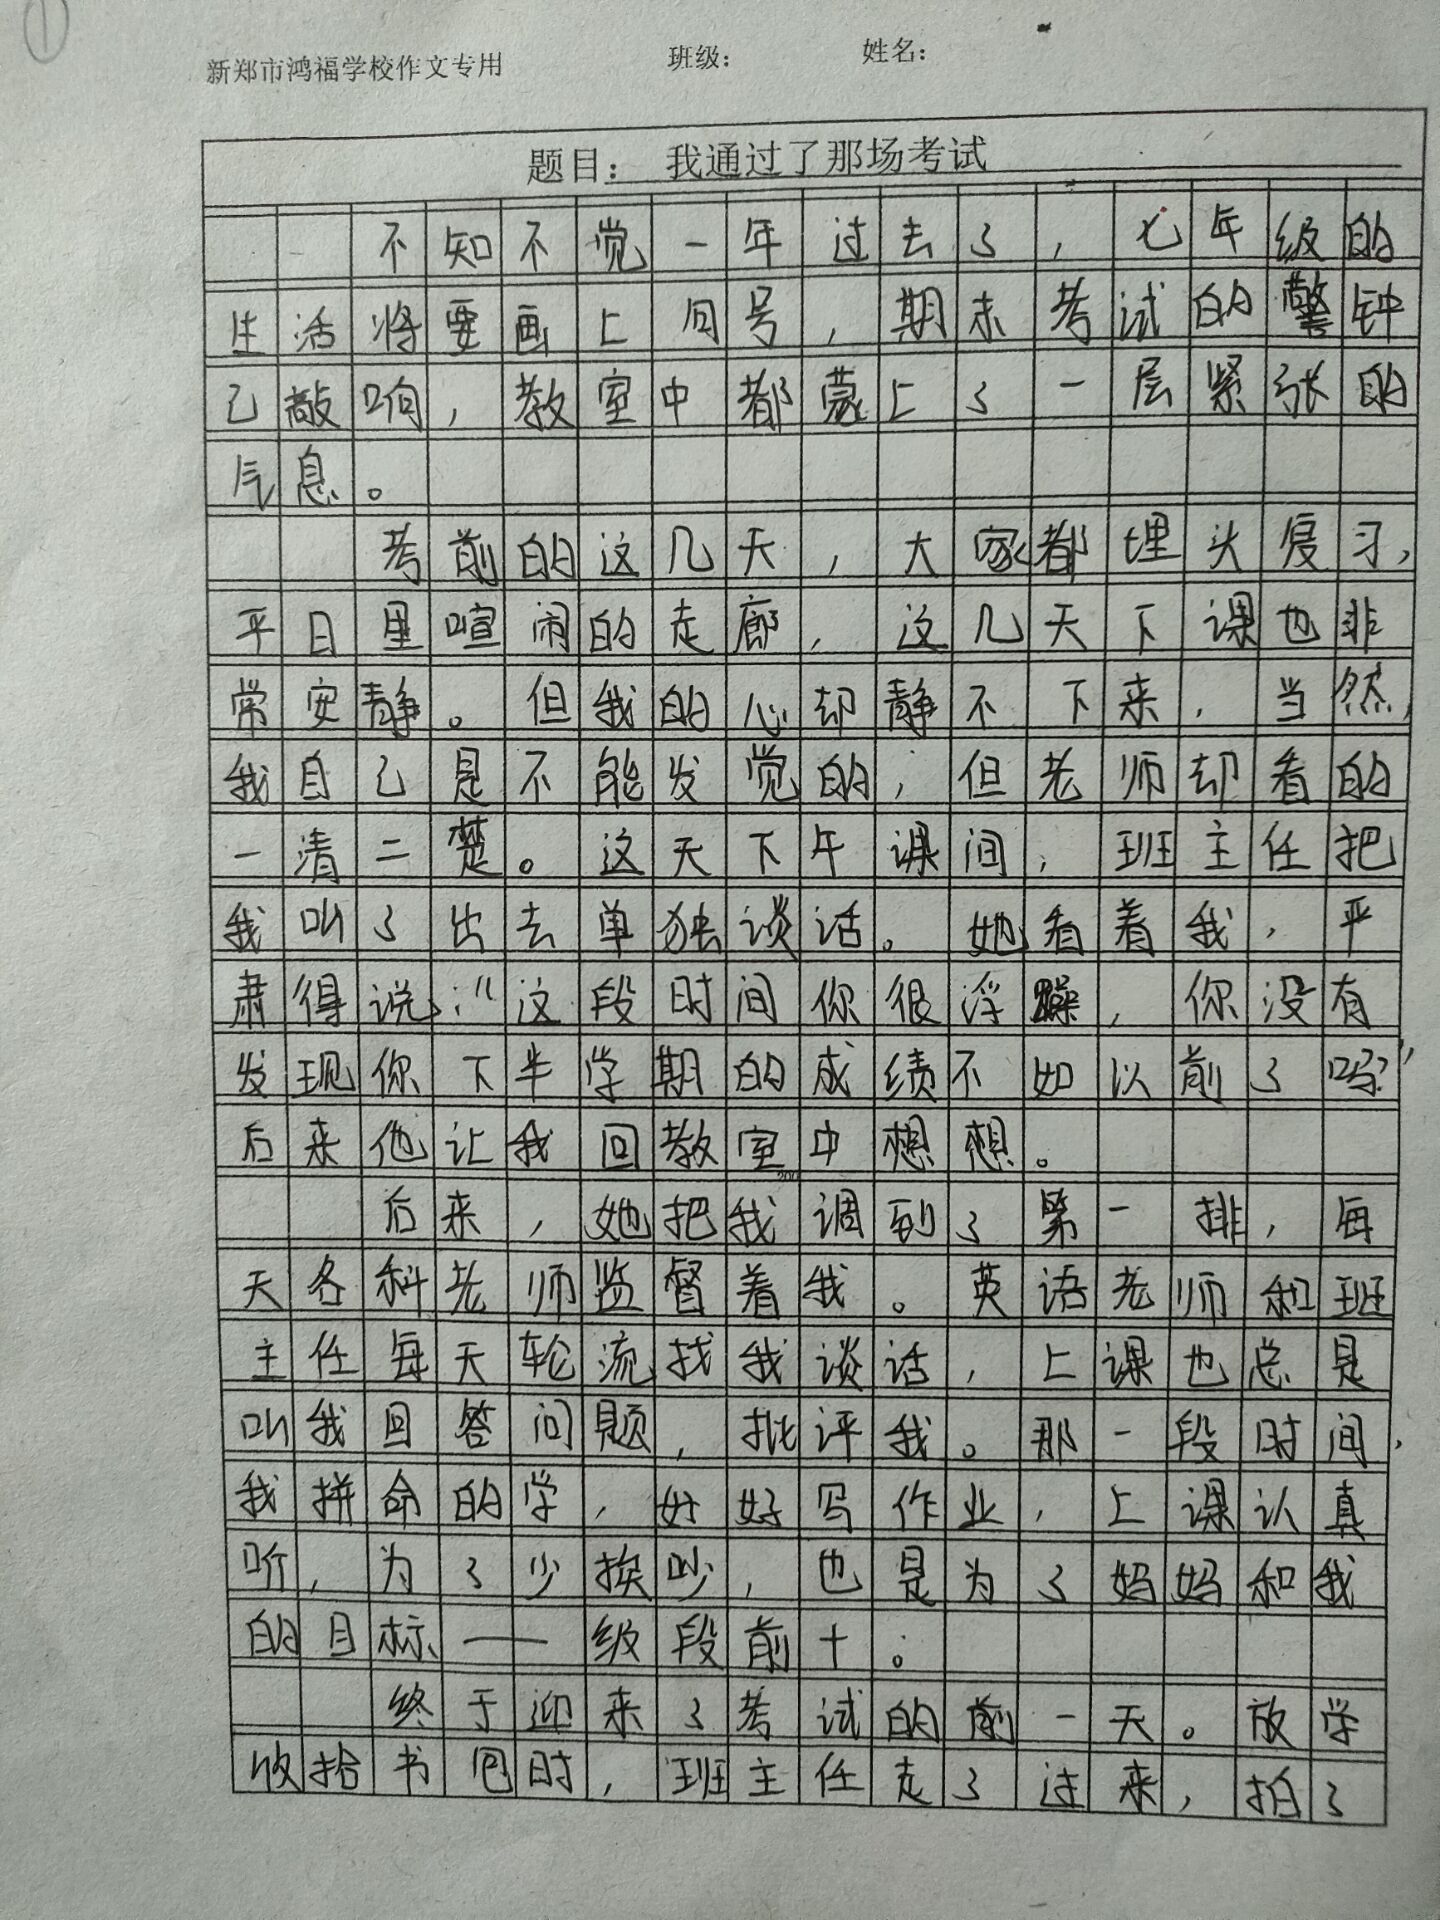 ①
新郑市鸿福学校作文专用 班级： 姓名：
题目： 我通过了那场考试
不知不觉一年过去了，七年级的
生活将要画上句号，期末考试的警钟
已敲响，教室中都蒙上了一层紧张的
气息。
考前的这几天，大家都埋头复习，
平日里喧闹的走廊，这几天下课也非
常安静。但我的心却静不下来，当然，
我自己是不能发觉的，但老师却看的
一清二楚。这天下午课间，班主任把
我叫了出去单独谈话。她看着我，严
肃得说：“这段时间你很浮躁，你没有
发现你下半学期的成绩不如以前了吗？”
后来他让我回教室中想想。
200
后来，她把我调到了第一排，每
天各科老师监督着我。英语老师和班
主任每天轮流找我谈话，上课也总是
叫我回答问题，批评我。那一段时间，
我拼命的学，好好写作业，上课认真
听，为了少挨吵，也是为了妈妈和我
的目标——级段前十。
终于迎来了考试的前一天。放学
收拾书包时，班主任走了过来，拍了